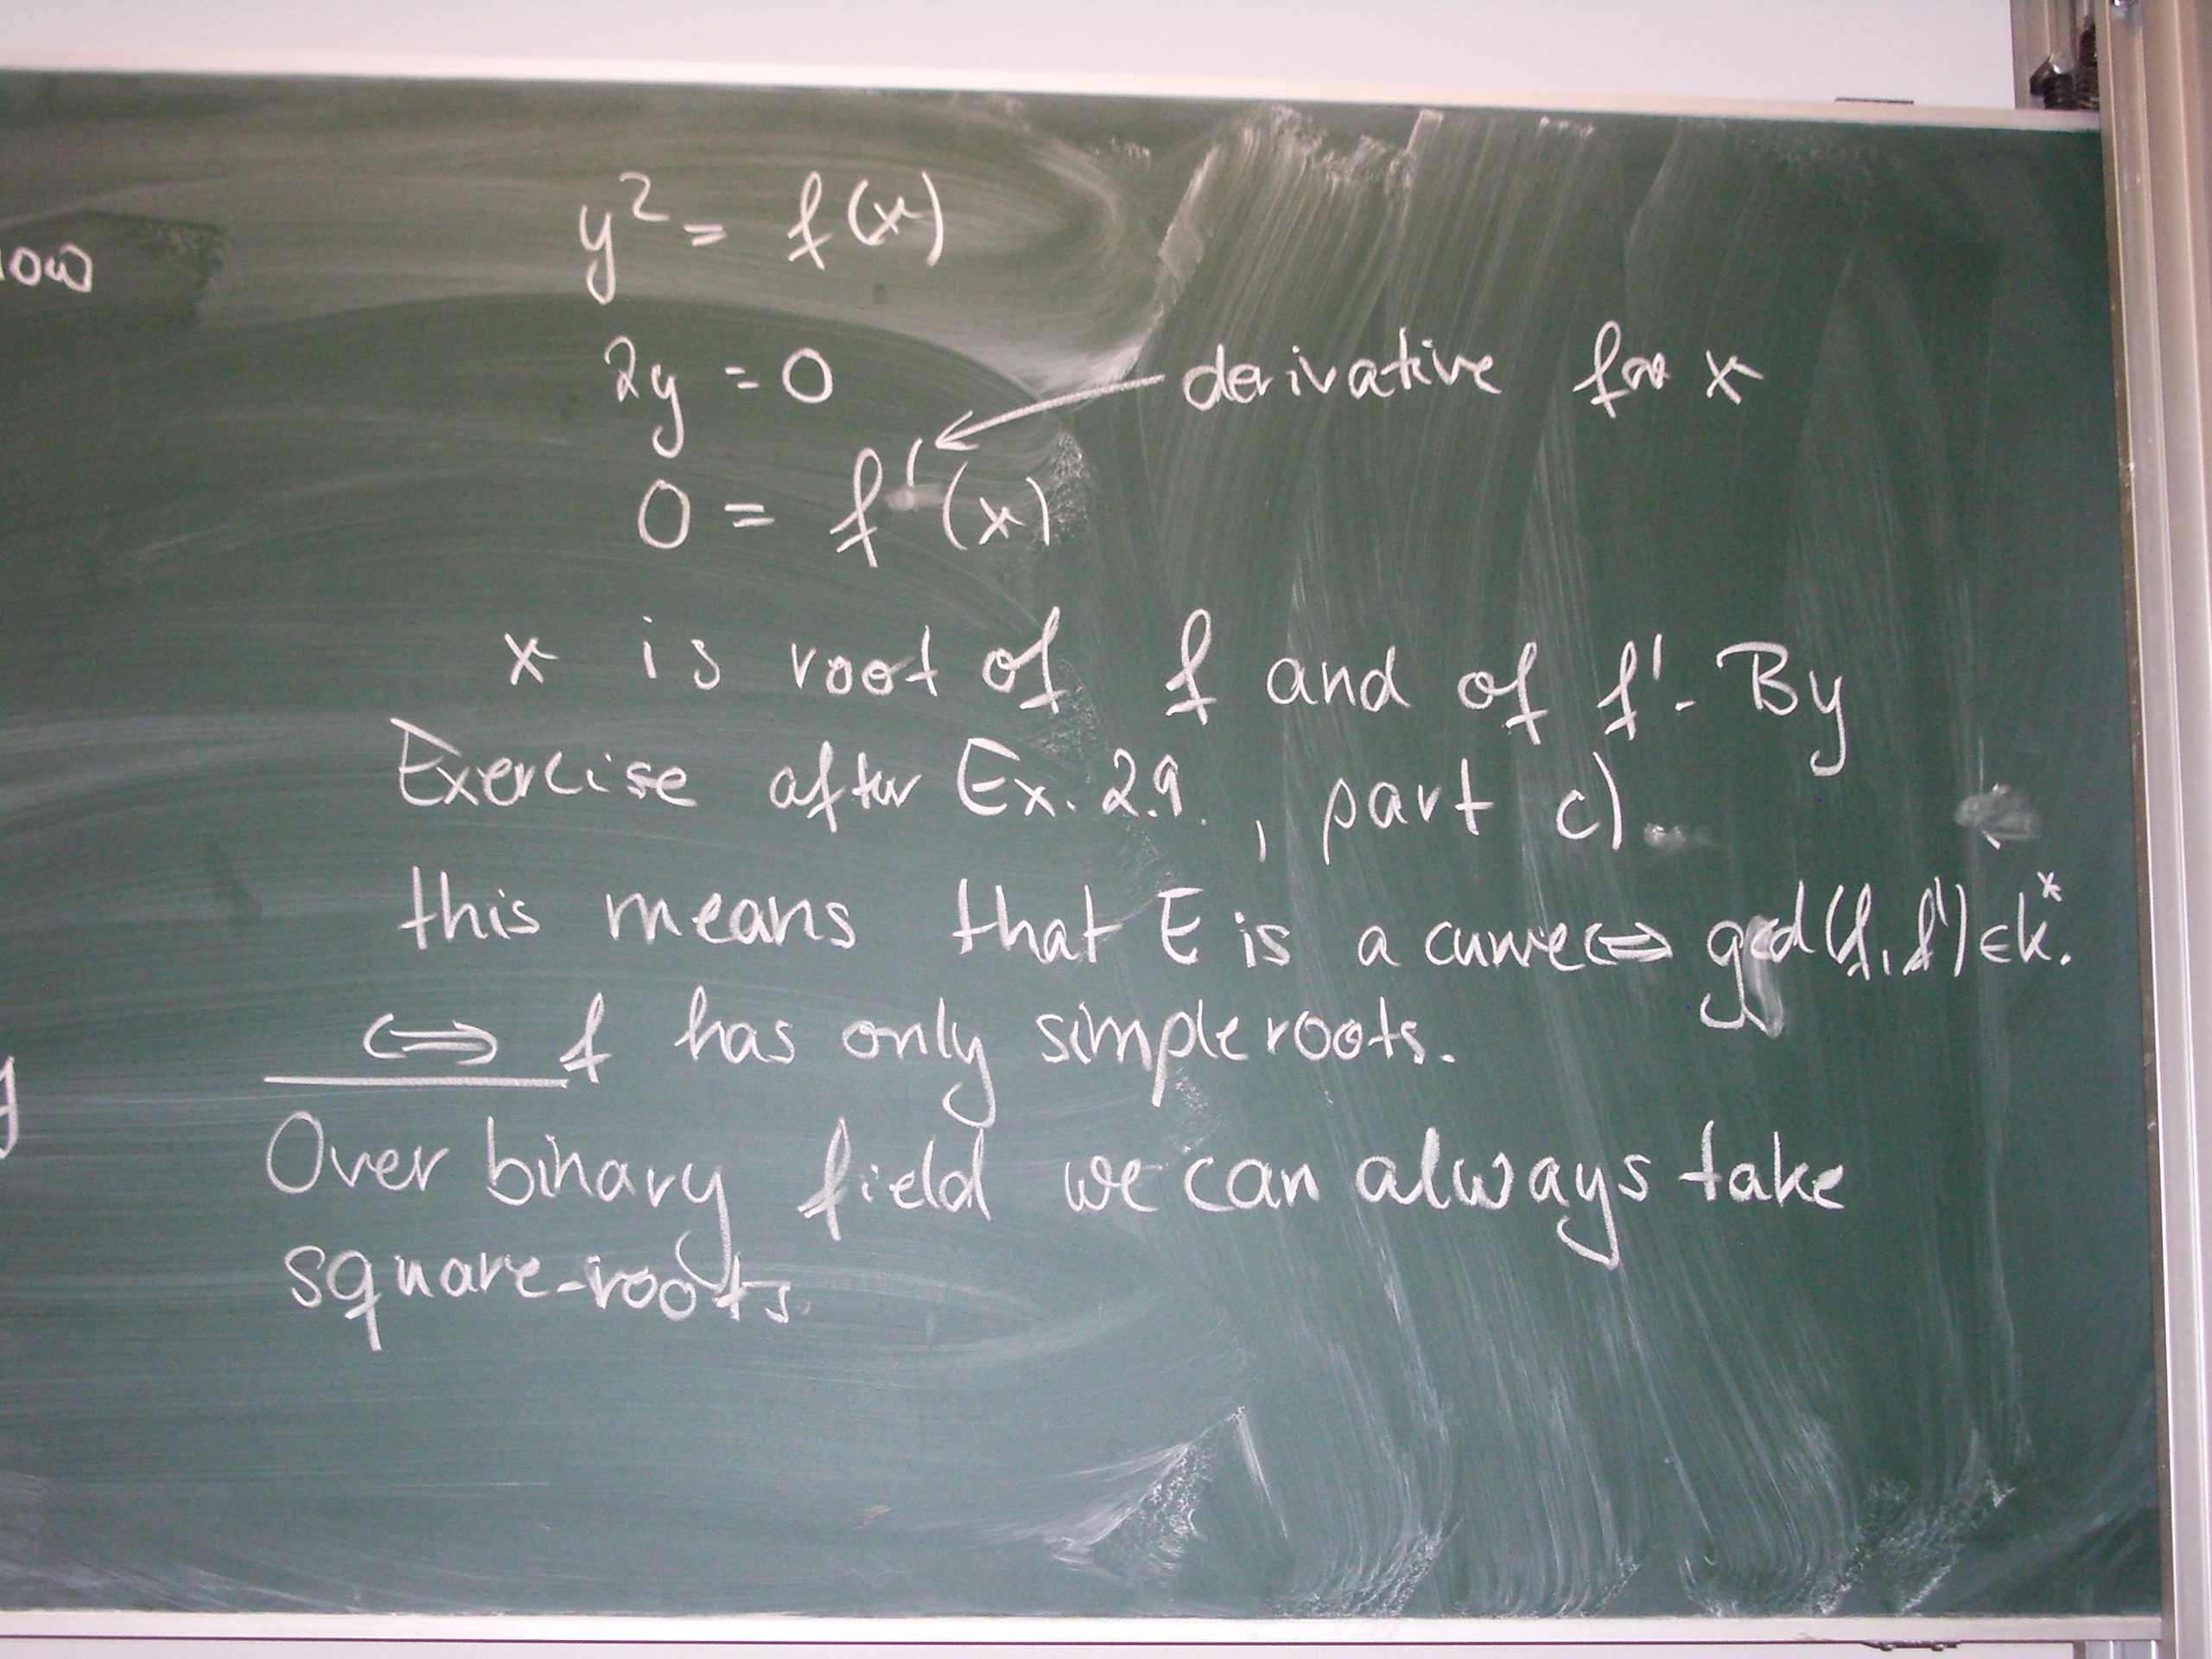 y² = f(x)
2y = 0
derivative for x
0 = f'(x)
x is root of f and of f'. By
Exercise after Ex. 2.9., part c)
this means that E is a curve ⇔ gcd(f, f') ∈ k*.
⇔ f has only simple roots.
Over binary field we can always take
square-roots.